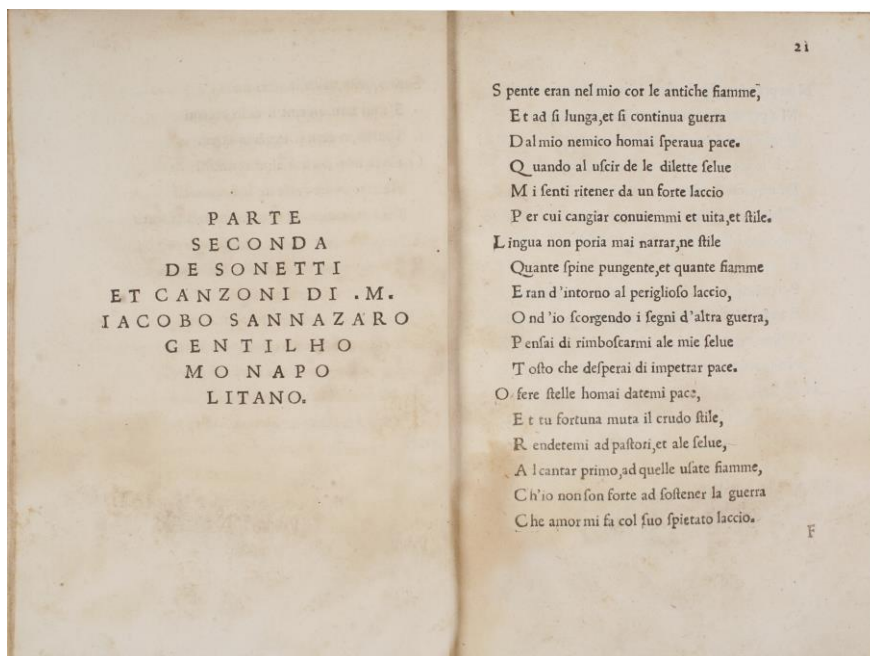 PARTE
SECONDA
DE SONETTI
ET CANZONI DI .M.
IACOBO SANNAZARO
GENTILHO
MO NAPO
LITANO.
21
S pente eran nel mio cor le antiche fiamme,
E t ad ſi lunga,et ſi continua guerra
D al mio nemico homai ſperaua pace.
Q uando al uſcir de le dilette ſelue
M i ſenti ritener da un forte laccio
P er cui cangiar conuiemmi et uita,et ſtile.
L ingua non poria mai narrar,ne ſtile
Quante ſpine pungente,et quante fiamme
E ran d'intorno al periglioſo laccio,
O nd'io ſcorgendo i ſegni d'altra guerra,
P enſai di rimboſcarmi ale mie ſelue
T oſto che deſperai di impetrar pace.
O fere ſtelle homai datemi pace,
E t tu fortuna muta il crudo ſtile,
R endetemi ad paſtori,et ale ſelue,
A l cantar primo,ad quelle uſate fiamme,
C h'io non ſon forte ad ſoſtener la guerra
C he amor mi fa col ſuo ſpietato laccio.
F